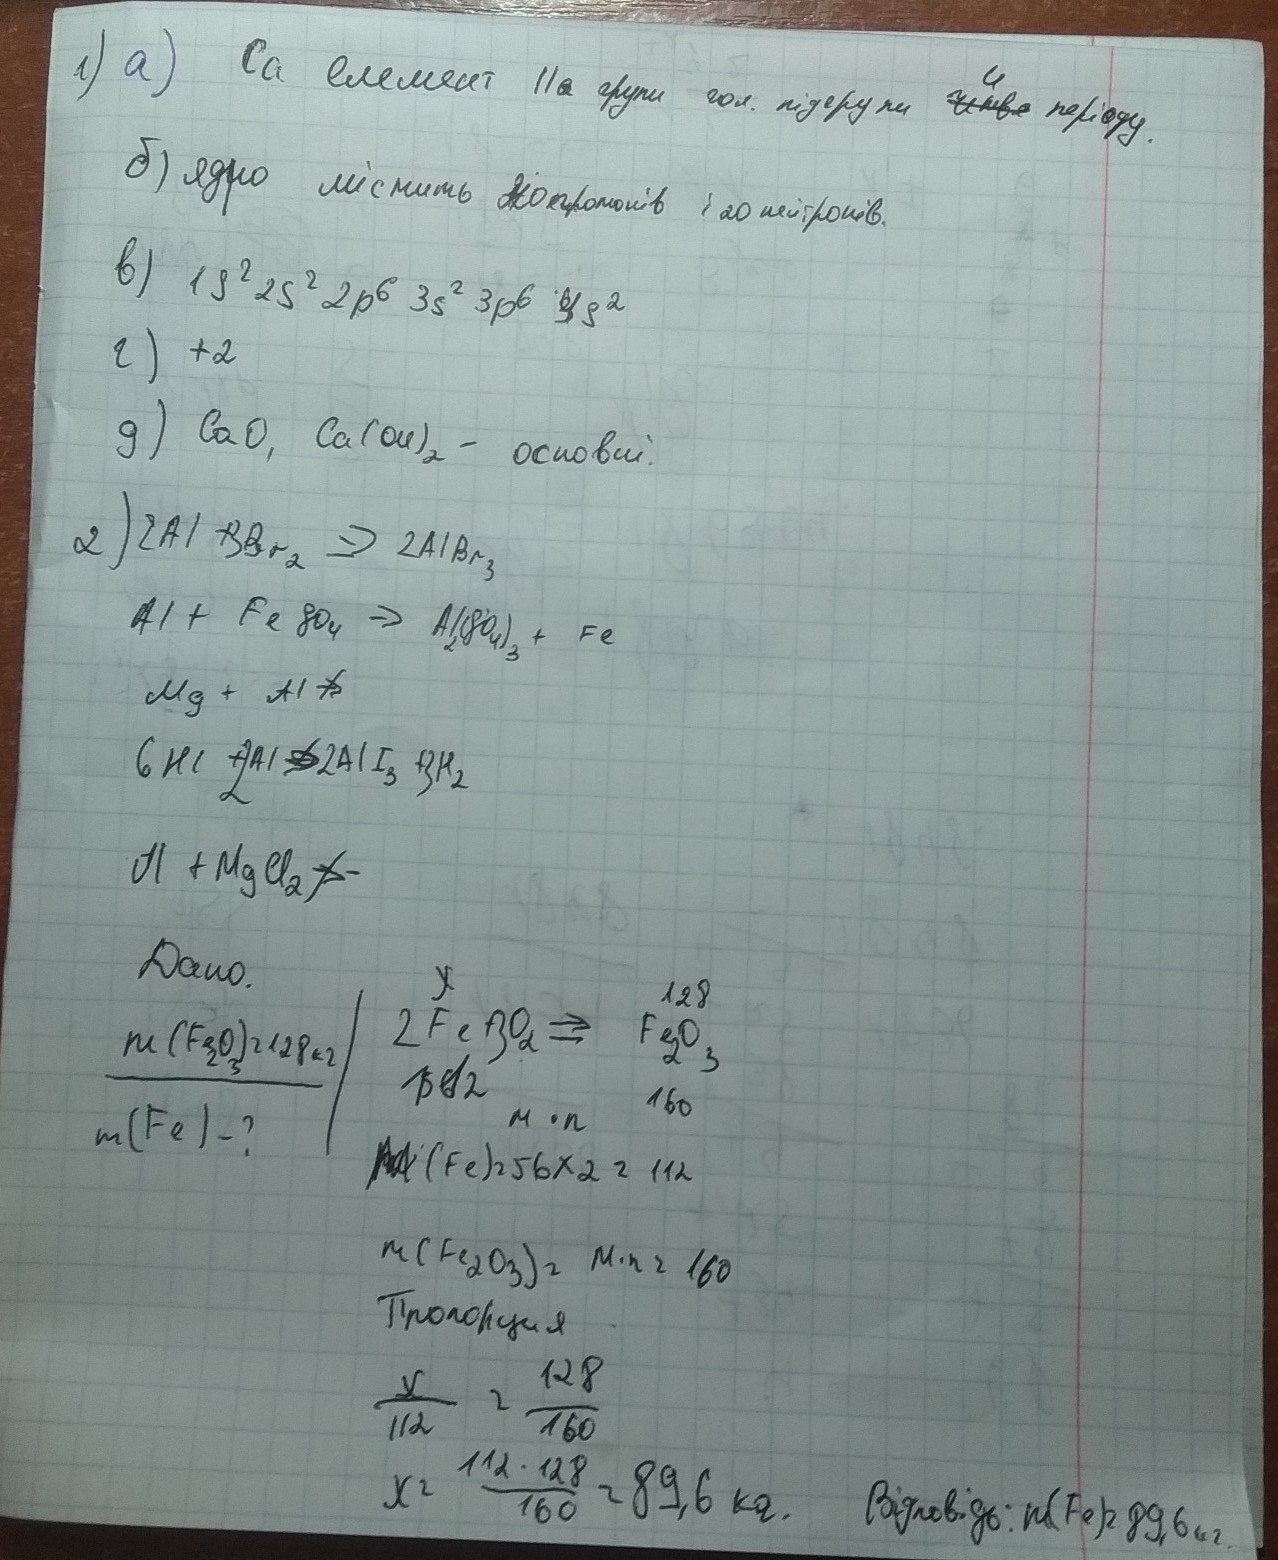 1) а) Ca елемент IIа групи гол. підгрупи 4 періоду.
б) ядро містить 20 протонів і 20 нейтронів.
в) 1s² 2s² 2p⁶ 3s² 3p⁶ 4s²
г) +2
д) CaO, Ca(OH)₂ - основні.
2) 2Al + 3Br₂ => 2AlBr₃
Al + FeSO₄ => Al₂(SO₄)₃ + Fe
Mg + Al ≠>
6HI + 2Al => 2AlI₃ + 3H₂
Al + MgCl₂ ≠>
Дано.
x 128
m(Fe₂O₃) = 128кг 2Fe + 3O₂ => Fe₂O₃
160
m(Fe) - ? M · n
(Fe) = 56 × 2 = 112
m(Fe₂O₃) = M·n = 160
Пропорция
x/112 = 128/160
x = 112·128/160 = 89,6 кг. Відповідь: m(Fe) = 89,6 кг.